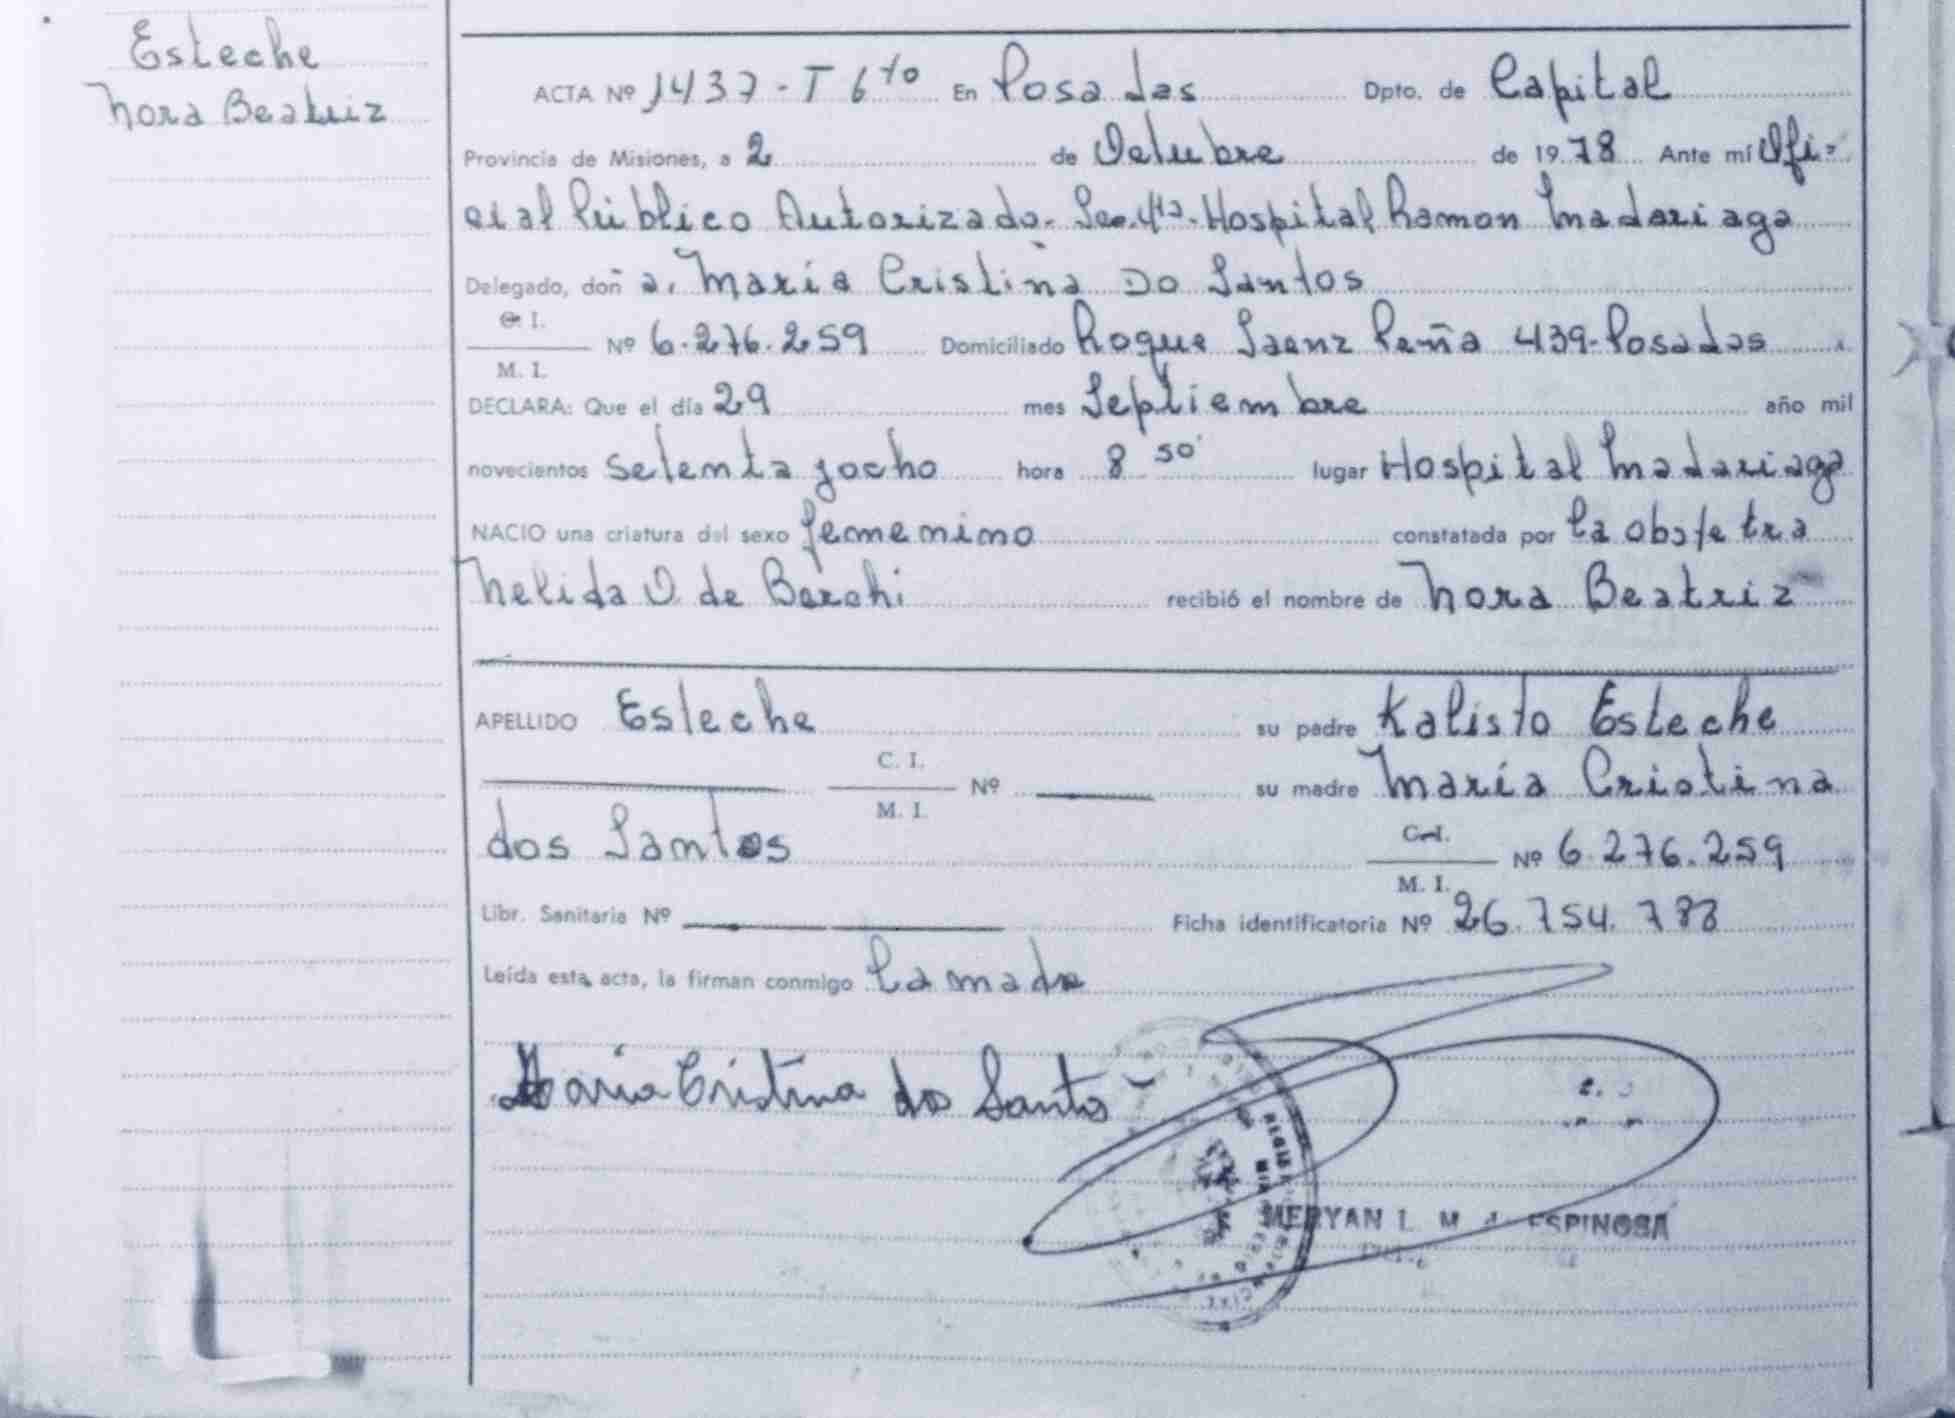 Esteche
Nora Beatriz
ACTA Nº 1437-T 6to En Posadas Dpto. de Capital
Provincia de Misiones, a 2 de Octubre de 1978 Ante mí Ofi-
cial Público Autorizado. Sec. 4ta. Hospital Ramon Madariaga
Delegado, doña. María Cristina Do Santos
C. I.
M. I.
Nº 6.276.259 Domiciliado Roque Saenz Peña 439-Posadas
DECLARA: Que el día 29 mes Septiembre año mil
novecientos setenta yocho hora 8 50' lugar Hospital Madariaga
NACIO una criatura del sexo femenino constatada por la obstetra
Nelida O. de Barchi recibió el nombre de Nora Beatriz
APELLIDO Esteche su padre Kalisto Esteche
C. I.
M. I.
Nº su madre María Cristina
dos Santos C. I.
M. I.
Nº 6.276.259
Libr. Sanitaria Nº Ficha identificatoria Nº 26.754.788
Leída esta acta, la firman conmigo la madre
María Cristina do Santo
MERYAN I. M ESPINOSA